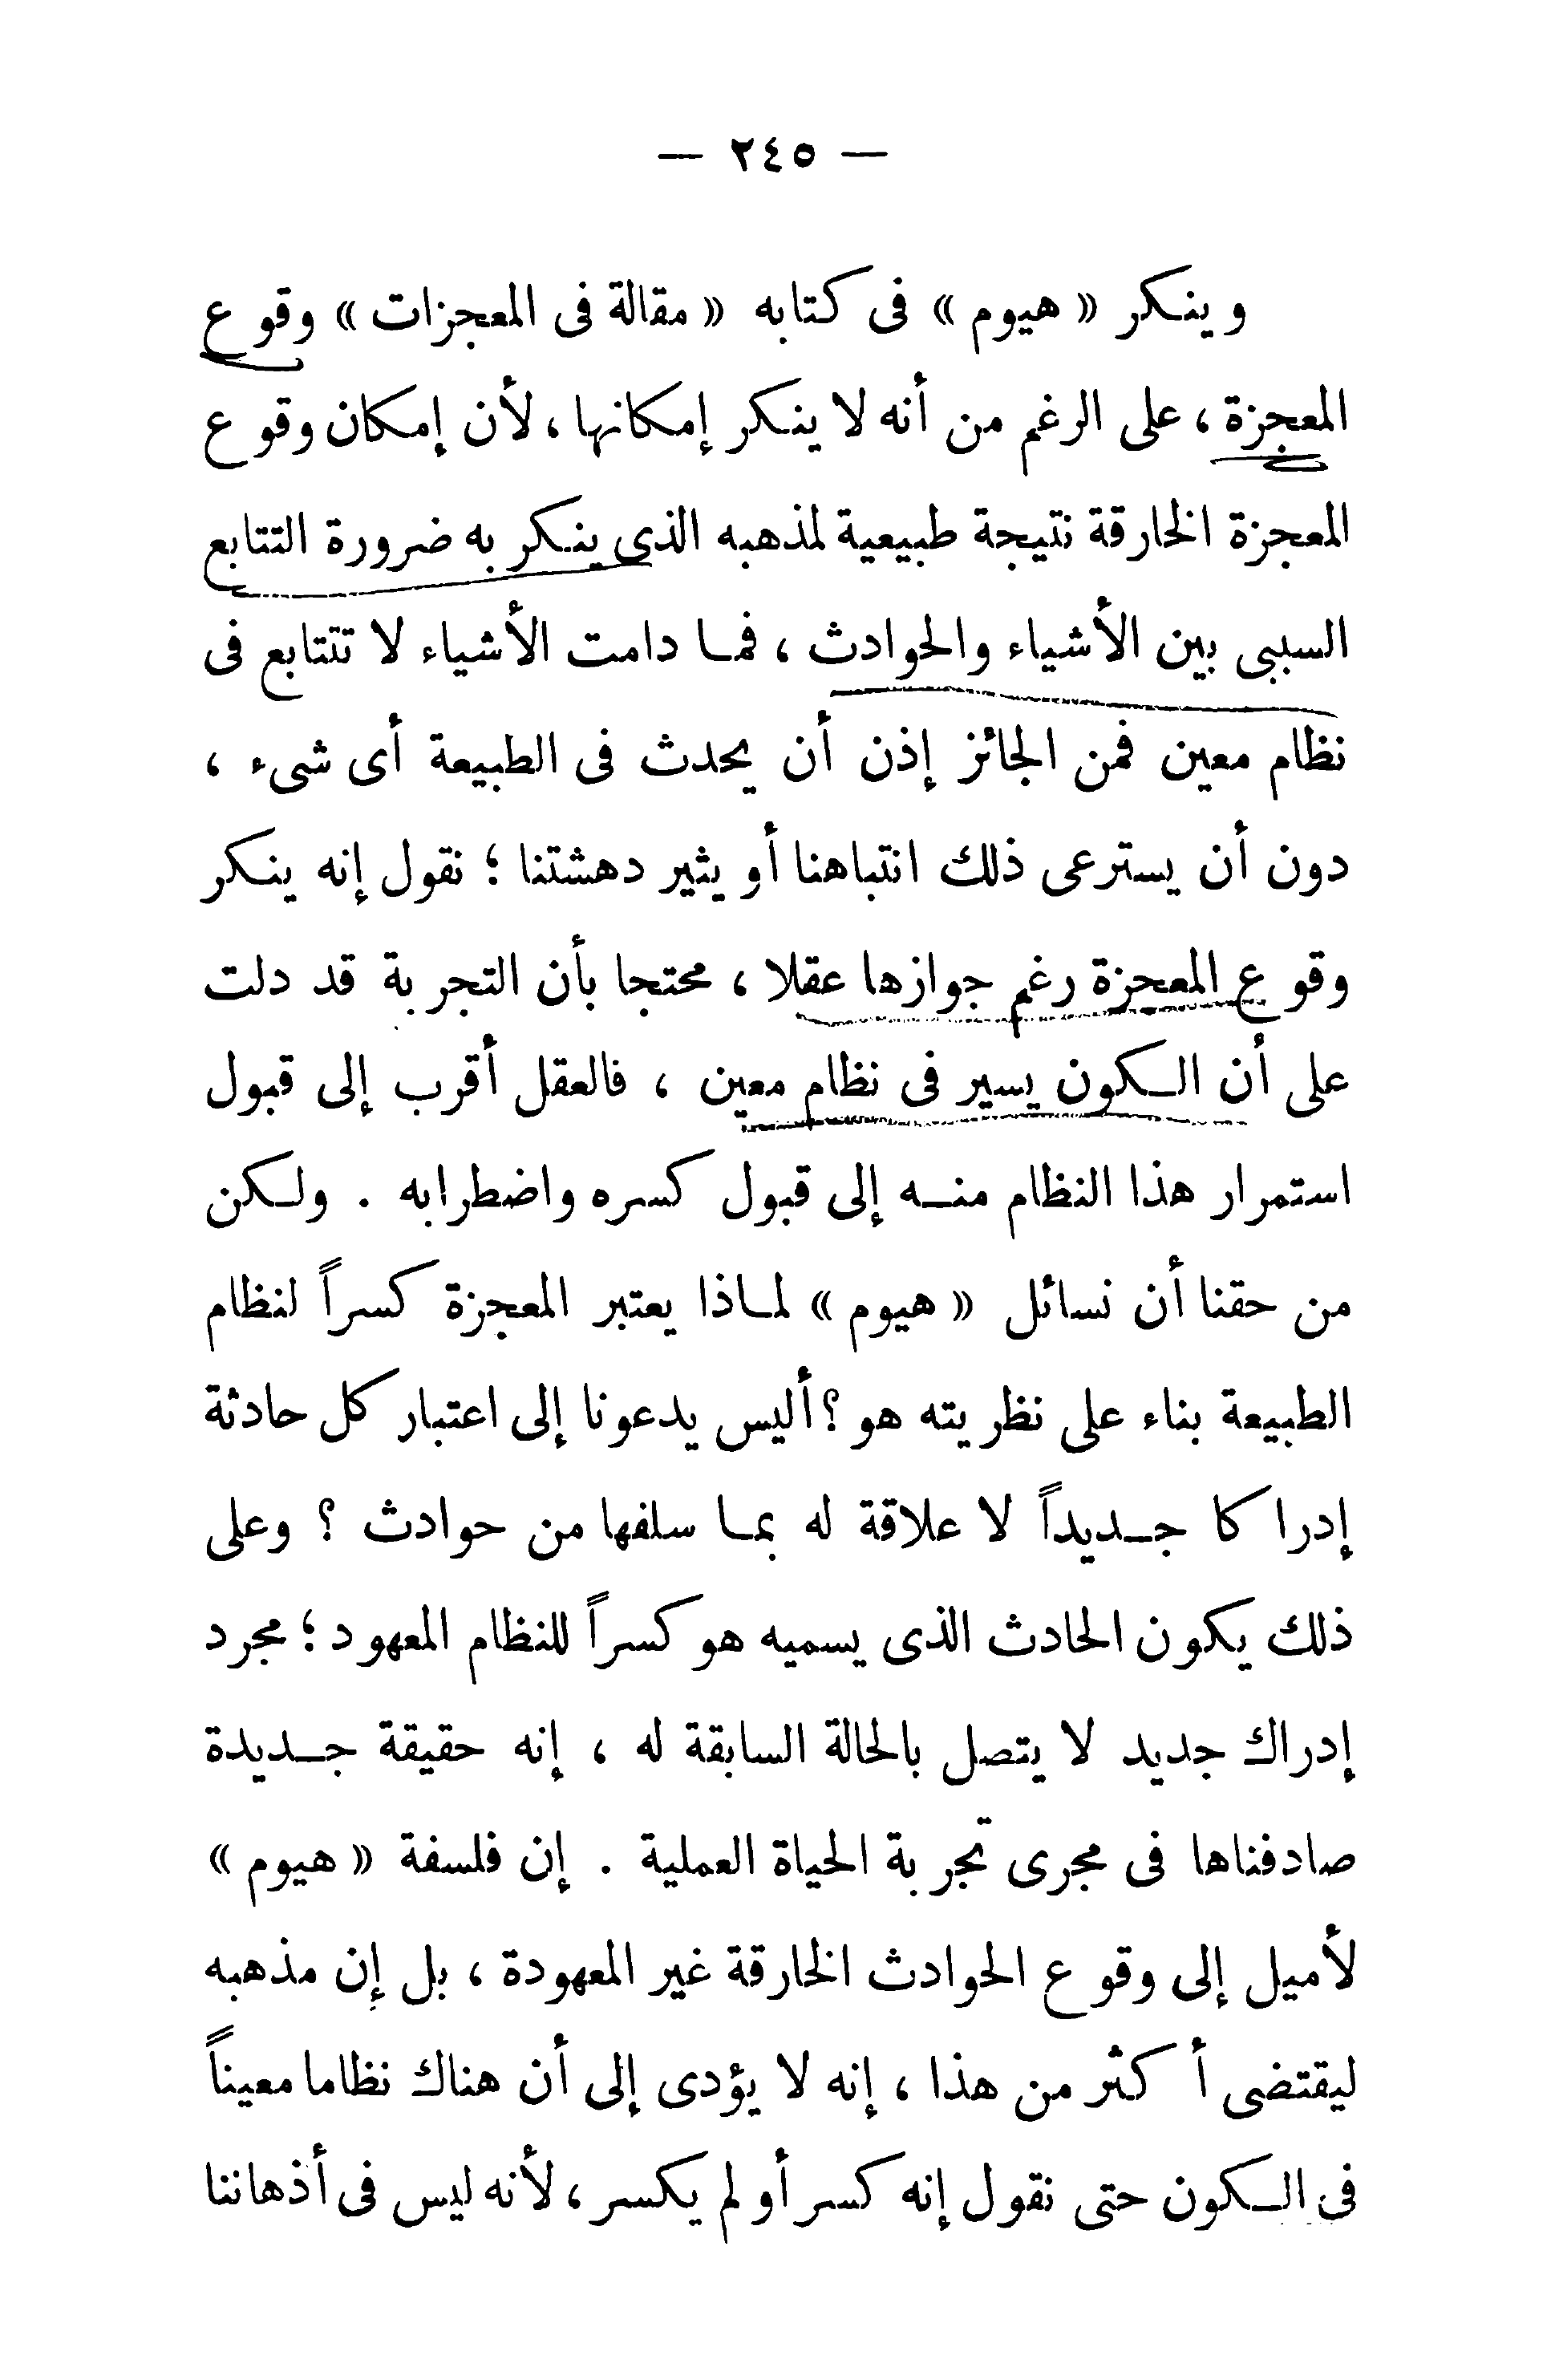 — ٢٤٥ —
وينكر « هيوم » فى كتابه « مقالة فى المعجزات » وقوع
المعجزة ، على الرغم من أنه لا ينكر إمكانها ، لأن إمكان وقوع
المعجزة الخارقة نتيجة طبيعية لمذهبه الذى ينكر به ضرورة التتابع
السببى بين الأشياء والحوادث ، فما دامت الأشياء لا تتتابع فى
نظام معين فمن الجائز إذن أن يحدث فى الطبيعة أى شىء ،
دون أن يسترعى ذلك انتباهنا أو يثير دهشتنا ؛ نقول إنه ينكر
وقوع المعجزة رغم جوازها عقلا ، محتجا بأن التجربة قد دلت
على أن الكون يسير فى نظام معين ، فالعقل أقرب إلى قبول
استمرار هذا النظام منه إلى قبول كسره واضطرابه . ولكن
من حقنا أن نسائل « هيوم » لماذا يعتبر المعجزة كسراً لنظام
الطبيعة بناء على نظريته هو ؟ أليس يدعونا إلى اعتبار كل حادثة
إدراكا جديداً لا علاقة له بما سلفها من حوادث ؟ وعلى
ذلك يكون الحادث الذى يسميه هو كسراً للنظام المعهود ؛ مجرد
إدراك جديد لا يتصل بالحالة السابقة له ، إنه حقيقة جديدة
صادفناها فى مجرى تجربة الحياة العملية . إن فلسفة « هيوم »
لأميل إلى وقوع الحوادث الخارقة غير المعهودة ، بل إن مذهبه
ليقتضى أكثر من هذا ، إنه لا يؤدى إلى أن هناك نظاما معيناً
فى الكون حتى نقول إنه كسر أو لم يكسر ، لأنه ليس فى أذهاننا